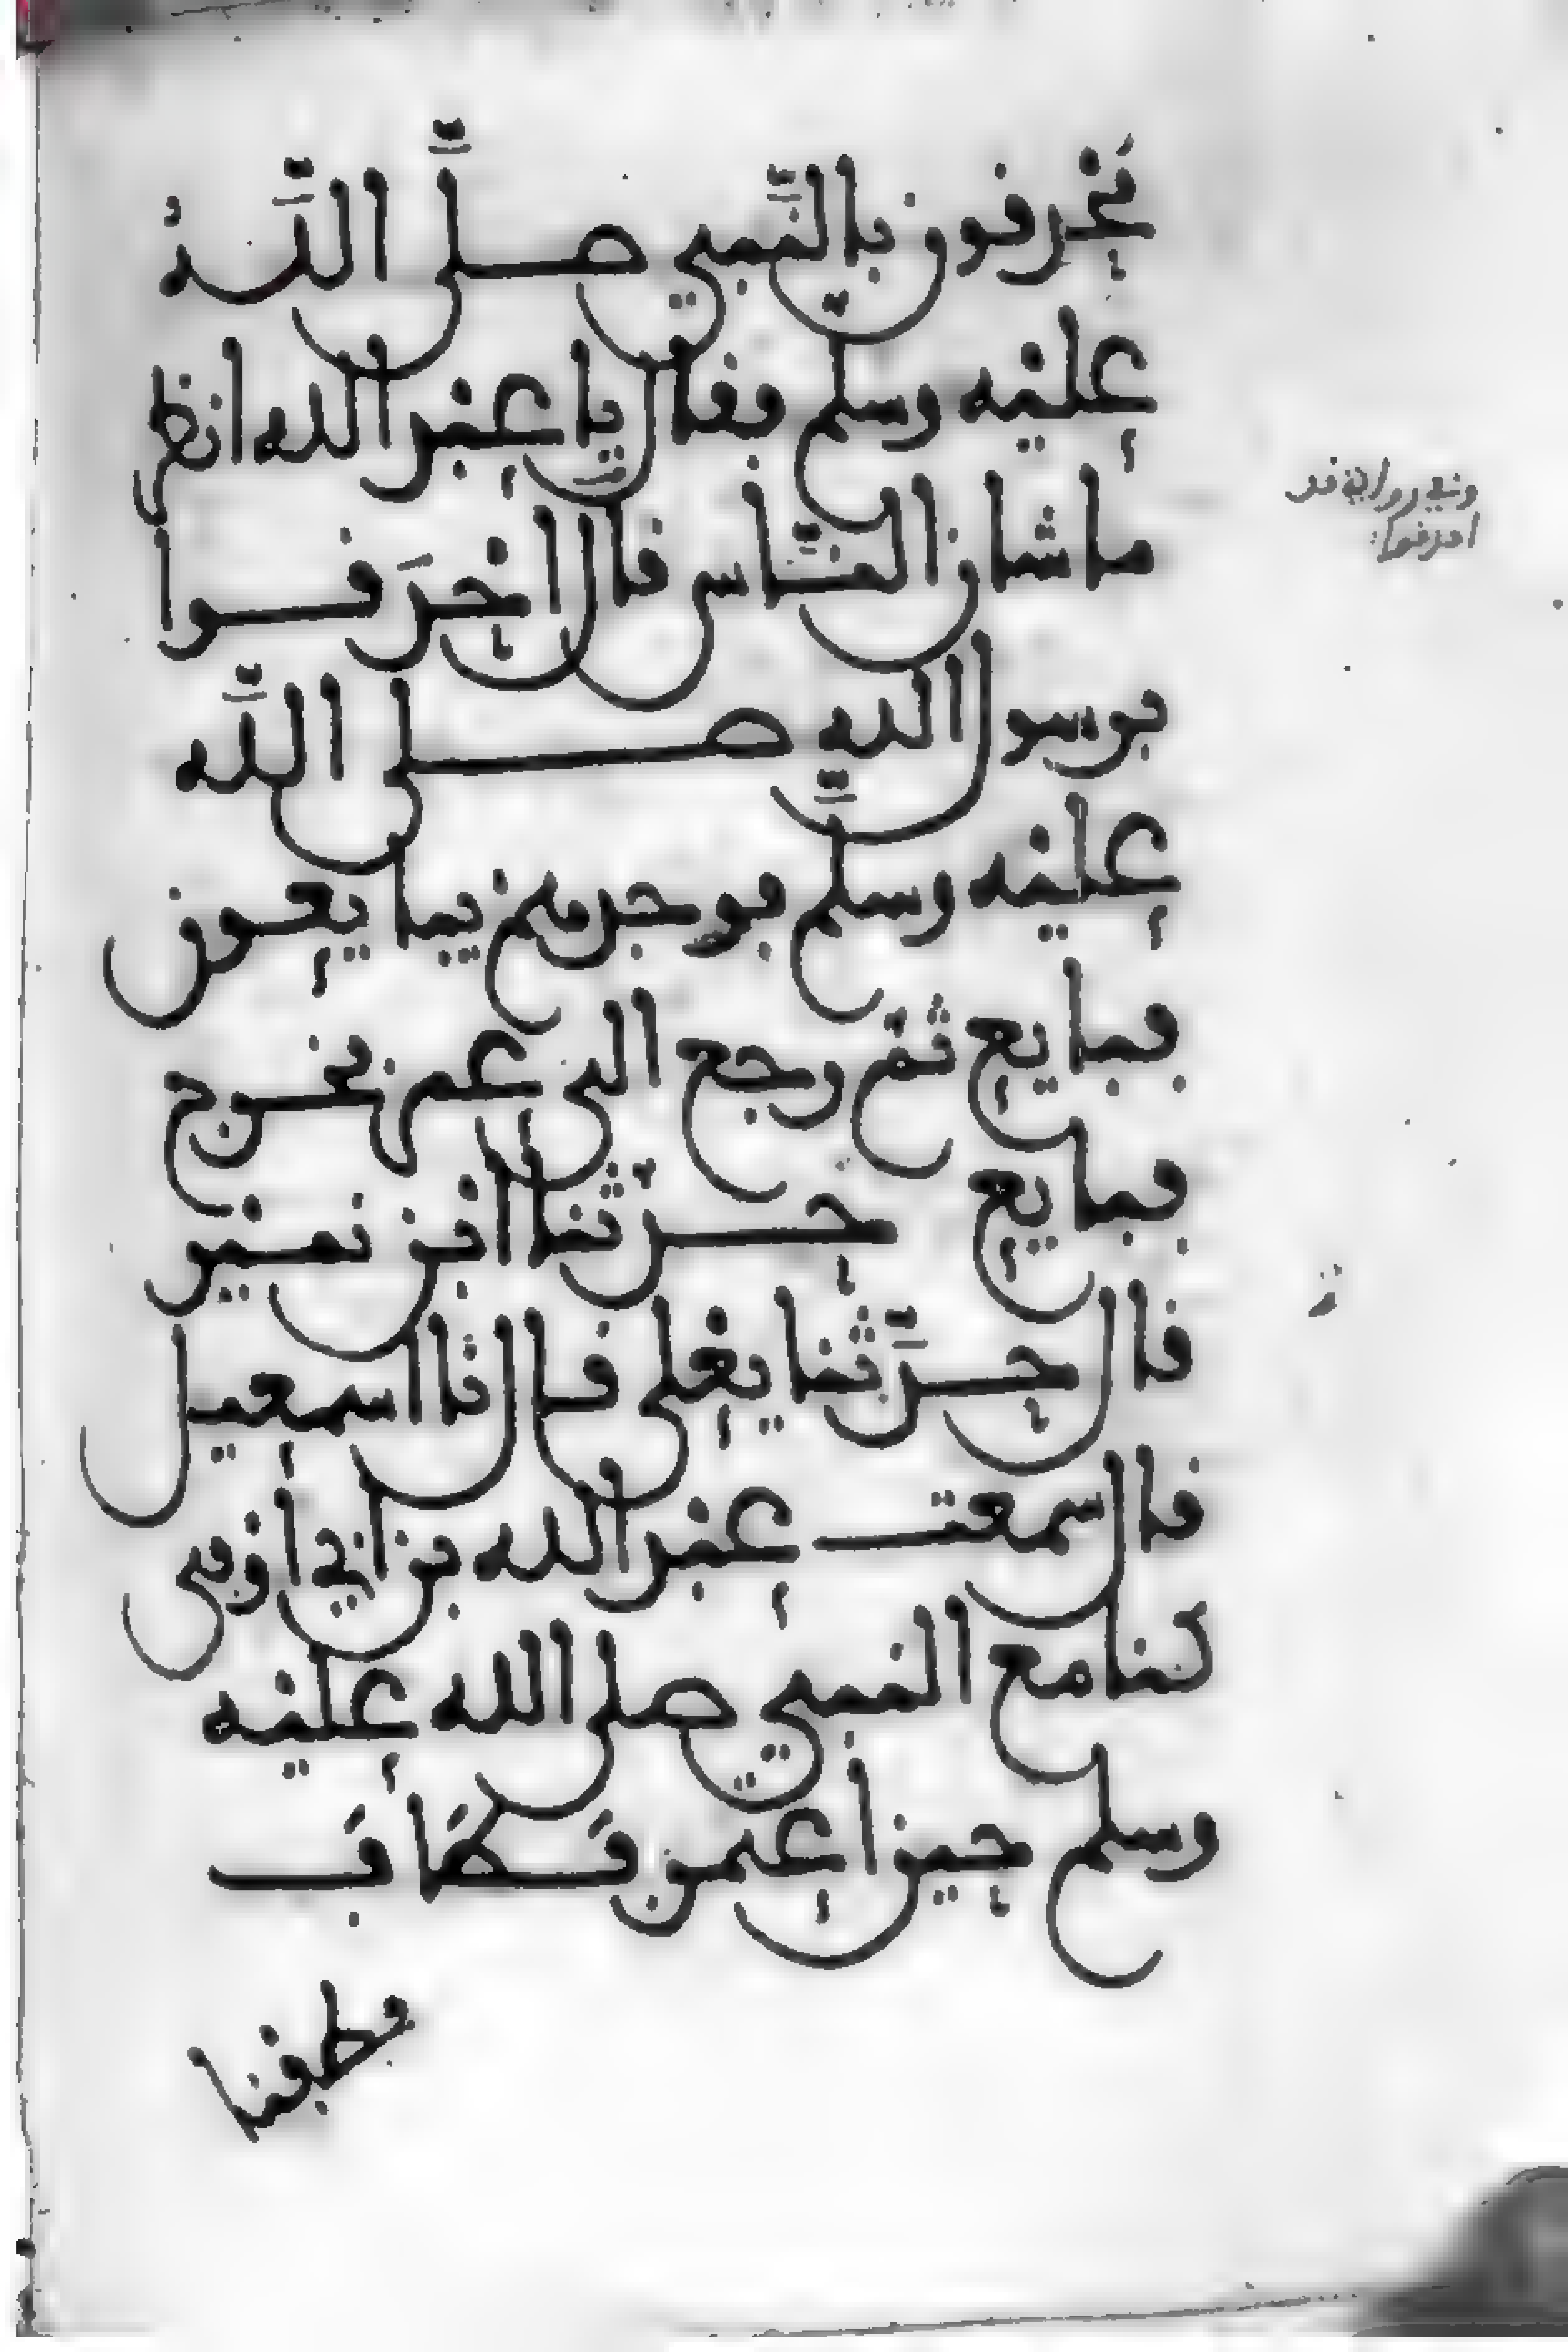 محدقون بالنَّبي صلَّى اللَّهُ
عليه وسلَّم فقال يا عبد الله انظر
ما شان النَّاس قال احدَقوا
برسول الله صلى اللَّه
عليه وسلَّم فوجدهم يبايعون
فبايع ثم رجع الى عمر فخرج
فبايع حدَّثنا ابن نمير
قال حدَّثنا يعلى قال نا اسمعيل
قال سمعت عبد الله بن ابي اوفى
كنا مع النبي صلى الله عليه
وسلم حين اعتمر فَطَافَ
فطفنا
وفي رواية قد
احدقوا